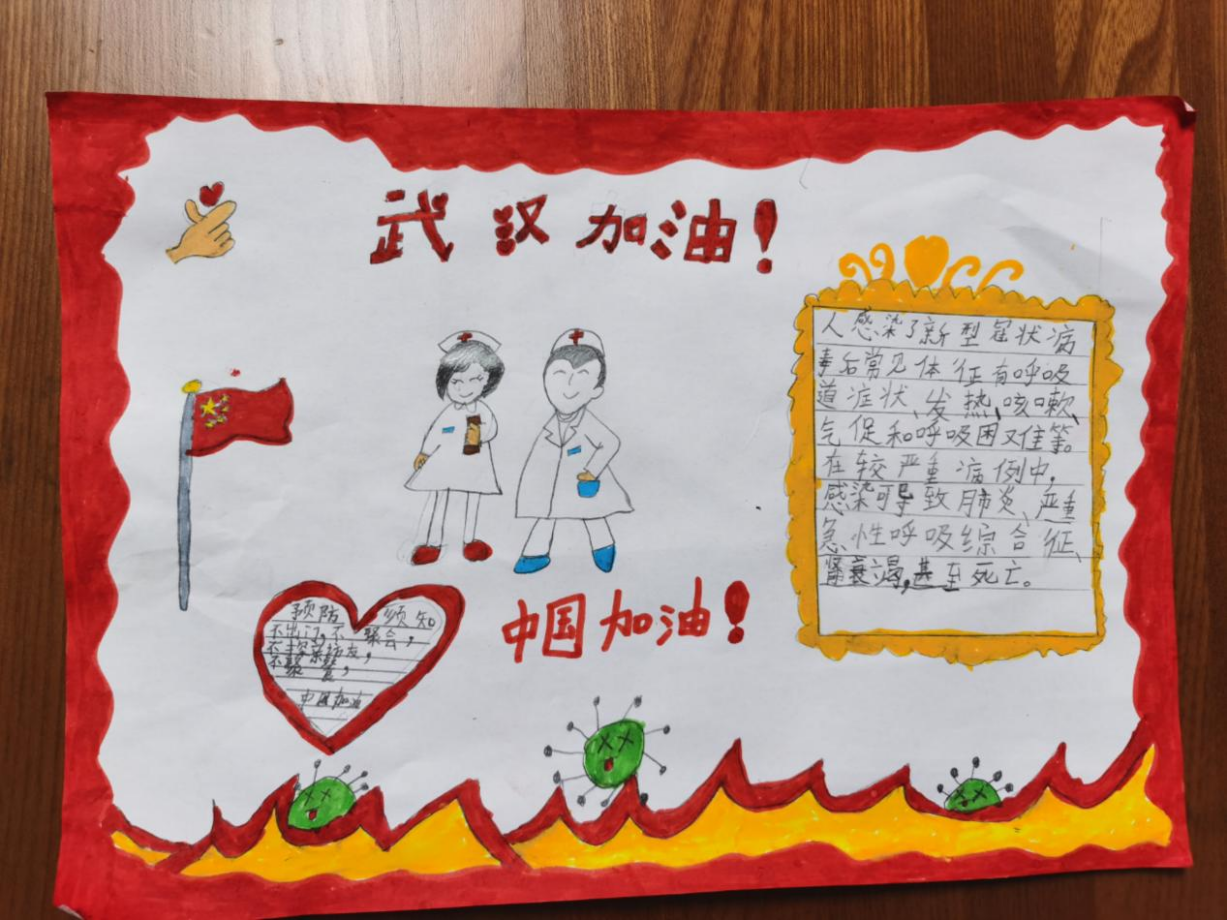 武汉加油!
人感染了新型冠状病
毒后常见体征有呼吸
道症状、发热、咳嗽、
气促和呼吸困难等。
在较严重病例中,
感染可导致肺炎、严重
急性呼吸综合征、
肾衰竭,甚至死亡。
中国加油!
预防须知
不出门,不聚会,
不探亲访友,
不聚餐,
中国加油